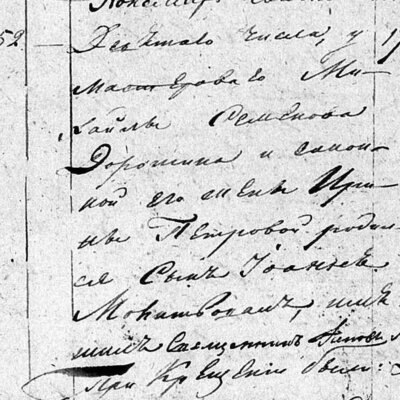 52 — Девятаго числа, у
мастероваго Ми-
хайлы Семенова
Дорошина и закон-
ной его жены Ири-
ны Петровой родил-
ся Сынъ Іоаннъ.
Молитвовалъ,
Священникъ
При Крещеніи были: